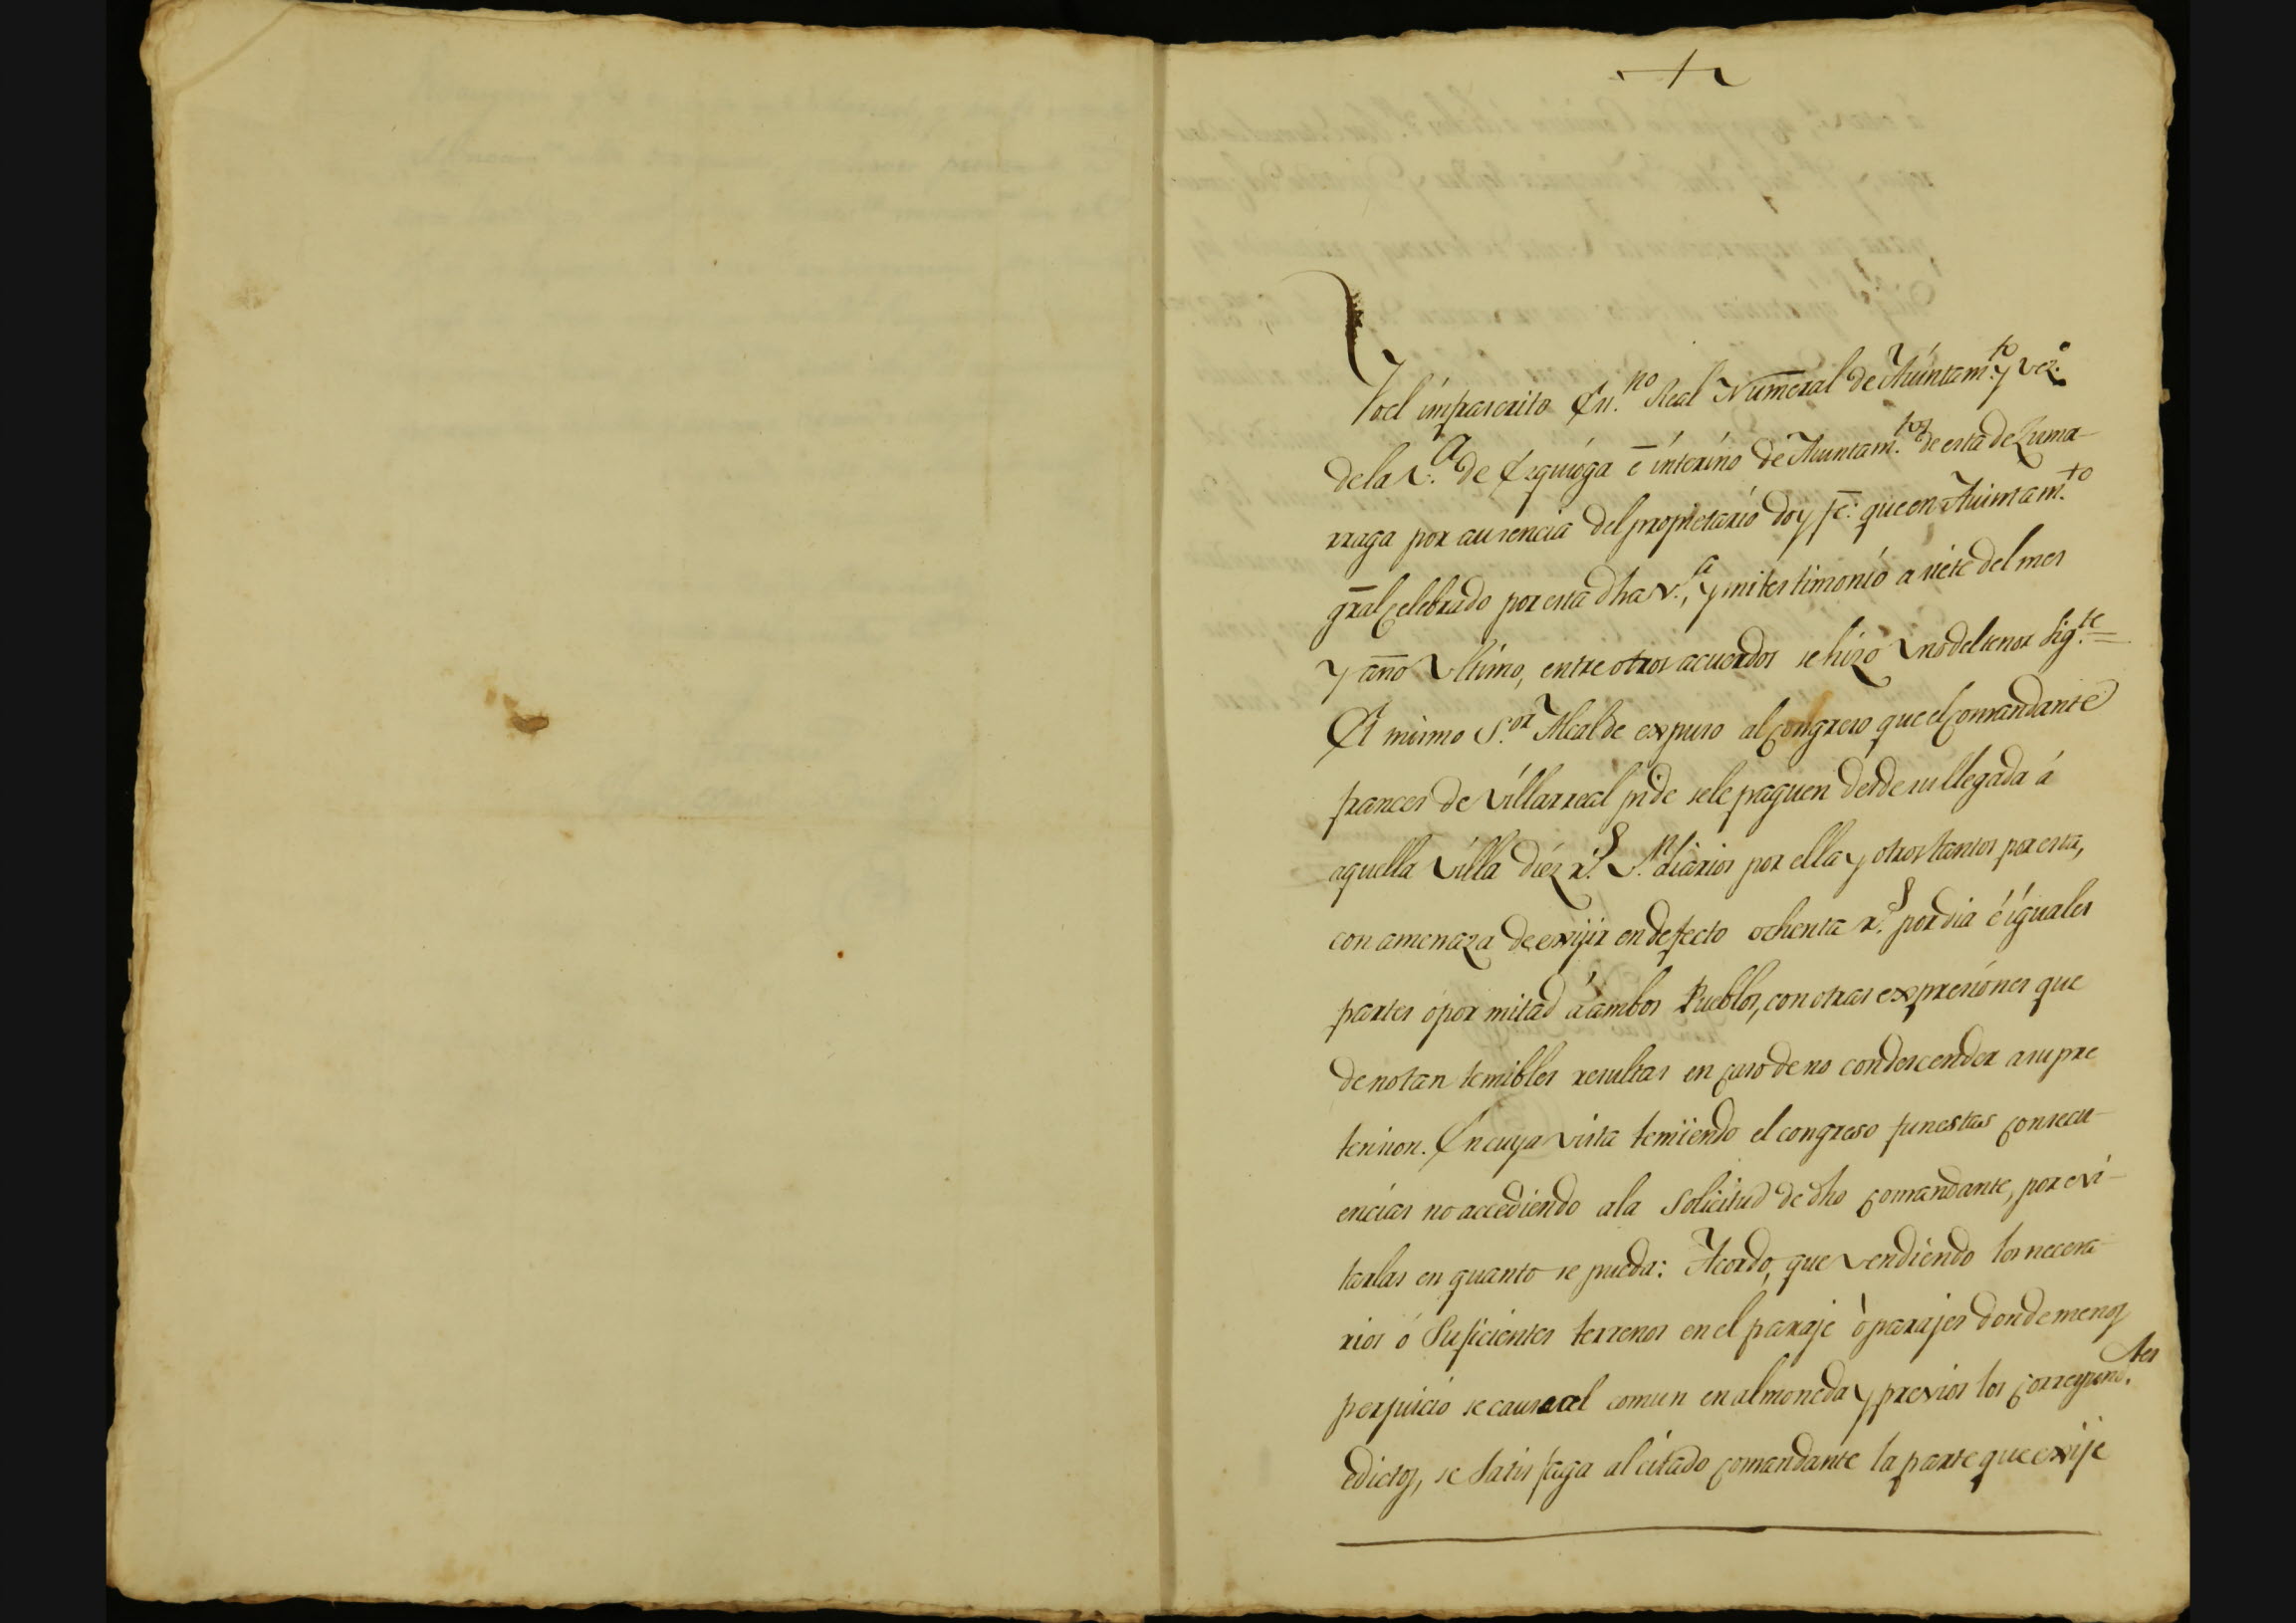 Yo el imfrascrito Esn.no Real Numeral de Ayuntam.to y vez.o
de la v.a de Ezquioga é interino de Ayuntam.tos de esta de Zuma-
rraga por ausencia del propietario doy fé: que en Ayuntam.to
gral celebrado por esta dha v.a, y mi testimonio a siete del mes
y año último, entre otros acuerdos se hizo uno del tenor sig.te =
El mismo S.or Alcalde expuso al congreso que el comandante
frances de Villarreal pide se le paguen desde su llegada á
aquella villa diez r.s v.n diarios por ella y otros tantos por esta,
con amenaza de exijir en defecto ochenta r.s por dia é iguales
partes o por mitad á ambos Pueblos, con otras expresiones que
denotan temibles resultas en caso de no condescender a su pre
tension. En cuya vista temiendo el congreso funestas consecu-
encias no accediendo a la Solicitud de dho comandante, por evi-
tarlas en quanto se pueda: Acordo, que vendiendo los necesa-
rios ó Suficientes terrenos en el paraje ò parajes donde menos
perjuicio se cause al comun en almoneda y previos los correspond.tes
edictos, se Satisfaga al citado comandante la parte que exije